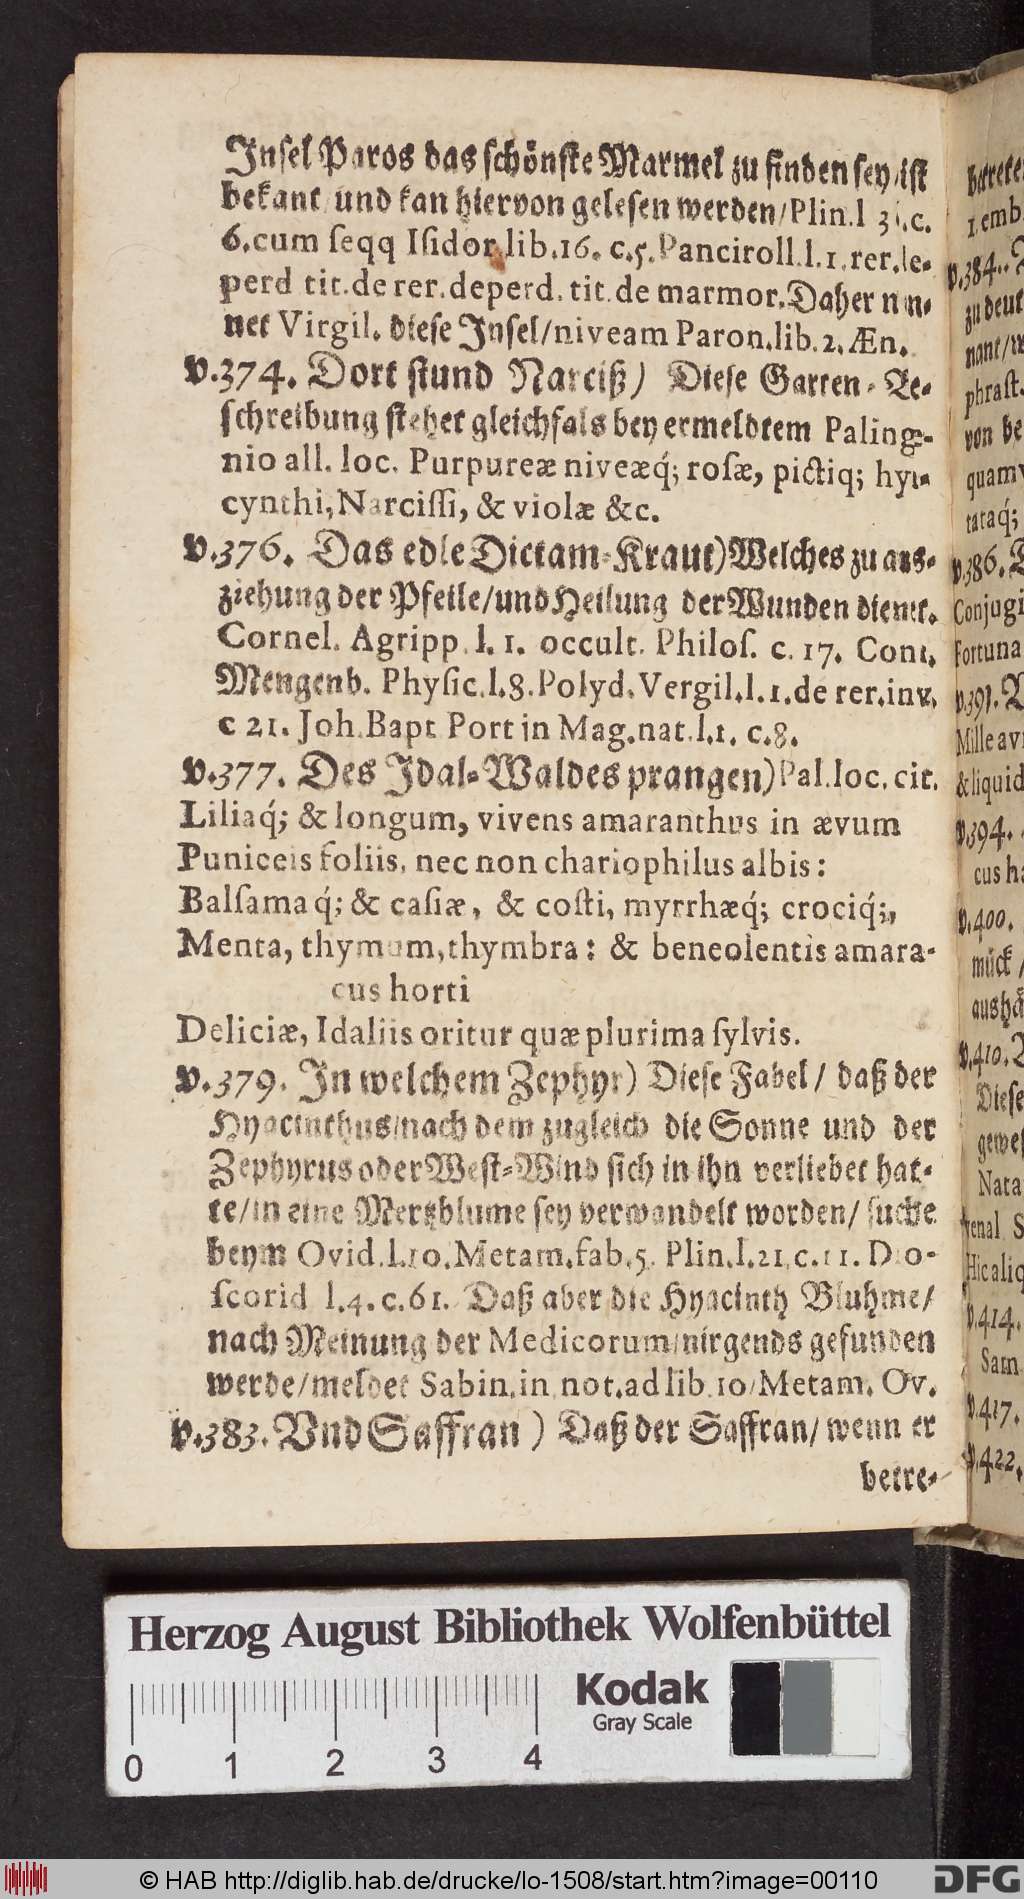 Inſel Paros das ſchönſte Marmel zu finden ſey/iſt
bekant/und kan hiervon geleſen werden/Plin.l 3 .c.
6.cum ſeqq Iſidor.lib.16. c.5.Panciroll.l.1.rer.de-
perd tit.de rer.deperd. tit.de marmor.Daher nen-
net Virgil. dieſe Inſel/niveam Paron.lib.2.Æn.
v.374. Dort ſtund Narciß) Dieſe Garten-Be-
ſchreibung ſtehet gleichfals bey ermeldtem Palinge-
nio all. loc. Purpureæ niveæq́; roſæ, pictiq; hya-
cynthi,Narciſſi, & violæ &c.
v.376. Das edle Dictam-Kraut)Welches zu aus-
ziehung der Pfeile/und Heilung der Wunden dienet.
Cornel. Agripp. l. 1. occult. Philoſ. c. 17. Conr.
Mengenb. Phyſic.l.8.Polyd.Vergil.l.1.de rer.inv.
c 21. Joh.Bapt Port in Mag.nat.l.1. c.8.
v.377. Des Idal-Waldes prangen)Pal.loc. cit.
Liliaq́; & longum, vivens amaranthus in ævum
Puniceis foliis, nec non chariophilus albis:
Balſamaq́; & caſiæ, & coſti, myrrhæq́; crociq́;,
Menta, thymum,thymbra: & beneolentis amara-
cus horti
Deliciæ, Idaliis oritur quæ plurima ſylvis.
v.379. In welchem Zephyr) Dieſe Fabel/ daß der
Hyacinthus/nach dem zugleich die Sonne und der
Zephyrus oder Weſt-Wind ſich in ihn verliebet hat-
te/in eine Mertzblume ſey verwandelt worden/ ſuche
beym Ovid.l.10.Metam.fab.5. Plin.l.21.c.11. Dio-
ſcorid l.4.c.61. Daß aber die Hyacinth Bluhme/
nach Meinung der Medicorum/nirgends gefunden
werde/meldet Sabin.in not.ad lib 10 Metam. Ov.
v.383. Vnd Saffran ) Daß der Saffran/ wenn er
betre-
v.384..
zu deut
phraſt.
von be
quam
tataq́;
v.386.
Conjugi
Fortuna
v.391.
Mille avi
& liquid
v.394.
cus ha
v.400.
mück /
v.410.
Dieſe
geweſ
Nata
Hic aliq
v.414.
Sam
v.417.
v.422.
Herzog August Bibliothek Wolfenbüttel
Kodak
Gray Scale
0 1 2 3 4
© HAB http://diglib.hab.de/drucke/lo-1508/start.htm?image=00110
DFG